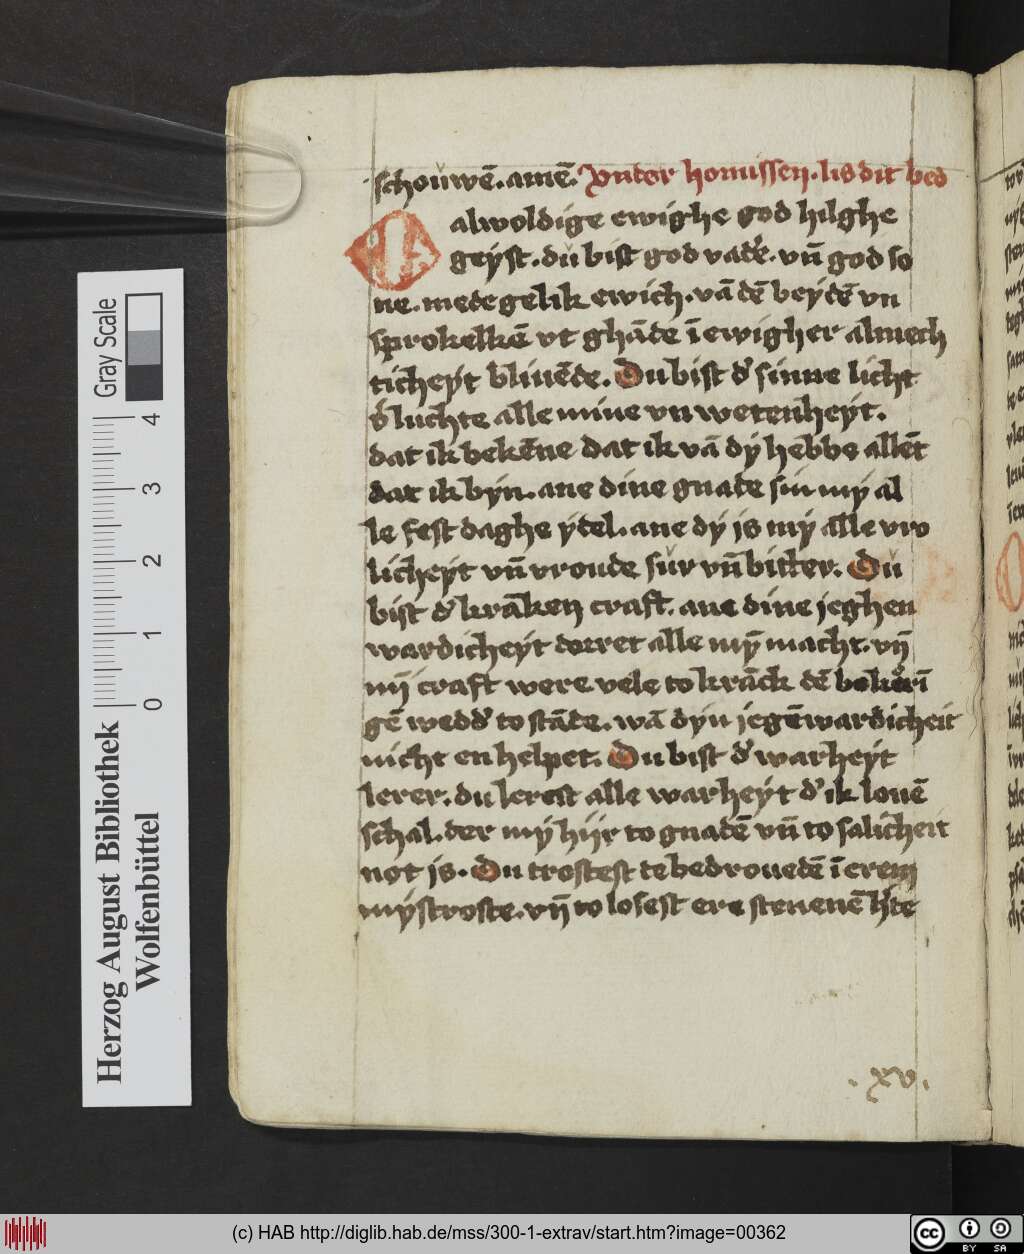 schouwē. amē. Vnder homissen. lis dit bed
O alwoldige ewighe god hilghe
geyst. du bist god vad'e. vn̄ god so
ne. mede gelik ewich. vā dē beydē vn
sprokelkē vt ghāde ī ewigher almech
ticheyt bliuēde. Du bist d' sinne licht
v'luchte alle mine vnwetenheyt.
dat ik bekēne dat ik vā dy hebbe allēt
dat ik byn. ane dine gnade sin my al
le fest daghe ytel. ane dy is my alle vro
licheyt vn̄ vroude sur vn̄ bitter. Du
bist d' krāken craft. ane dine jeghen
wardicheyt dorret alle my macht. vn̄
mī craft were vele to krāck dē bekori
gē wedd' to stāde. wā dyn jegēwardicheit
nicht en helpet. Du bist d' warheyt
lerer. du lerest alle warheyt d' ik louē
schal. der my hijr to gnadē vn̄ to salicheit
not is. Du trostest te bedrouedē ī erem
mystroste. vn̄ to losest ere steuenē
.xv.
Gray Scale
4
3
2
1
0
Herzog August Bibliothek
Wolfenbüttel
(c) HAB http://diglib.hab.de/mss/300-1-extrav/start.htm?image=00362
cc BY SA